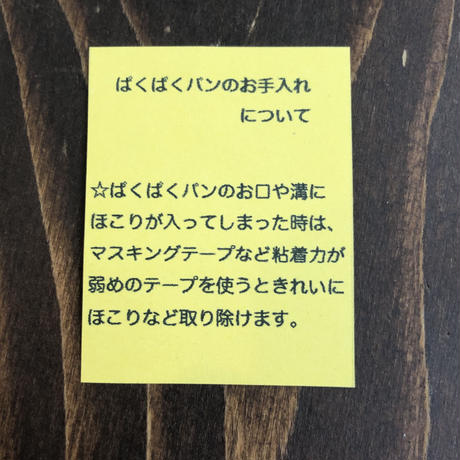 ぱくぱくパンのお手入れ
について
☆ぱくぱくパンのお口や溝に
ほこりが入ってしまった時は、
マスキングテープなど粘着力が
弱めのテープを使うときれいに
ほこりなど取り除けます。